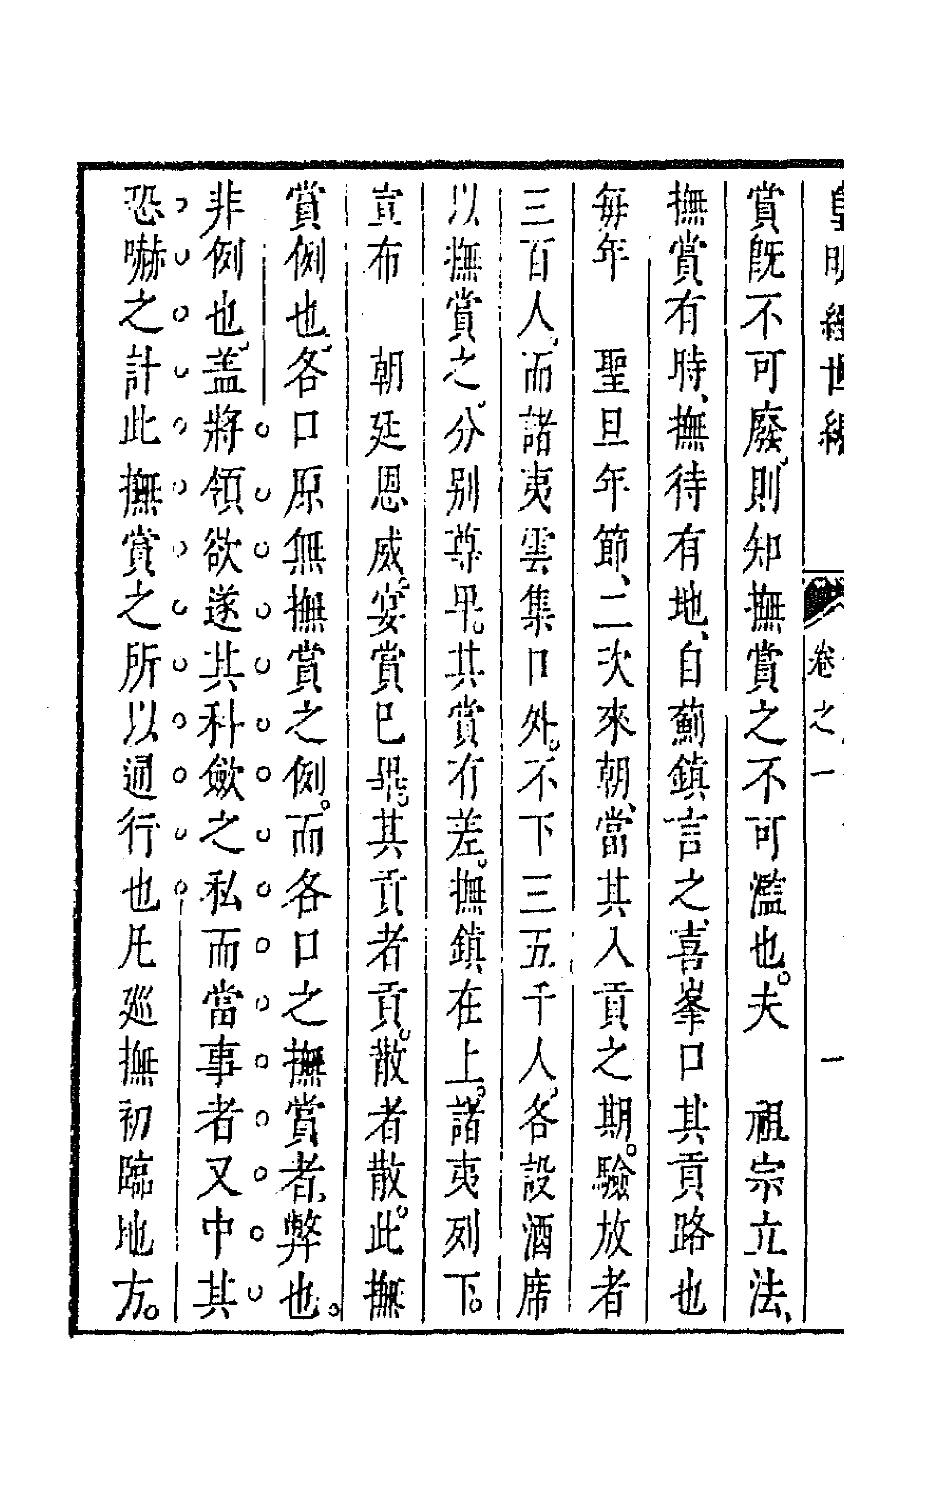 皇明經世編
卷之一
一
賞旣不可廢則知撫賞之不可濫也。夫　祖宗立法、
撫賞有時、撫待有地、自薊鎮言之、喜峯口其貢路也
每年　聖旦年節、二次來朝、當其入貢之期。驗放者
三百人。而諸夷雲集口外。不下三五千人。各設酒席
以撫賞之。分别尊卑。其賞有差。撫鎮在上。諸夷列下。
宣布　朝廷恩威。宴賞已畢。其貢者貢。散者散此。撫
賞例也。各口原無撫賞之例。而各口之撫賞者、弊也。
非例也。蓋將領欲遂其科斂之私而當事者又中其
恐嚇之計此撫賞之所以通行也凡廵撫初臨地方。